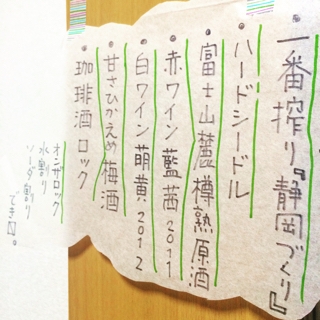 一番搾り『静岡づくり』
ハードシードル
富士山麓樽熟原酒
赤ワイン藍茜2011
白ワイン萌黄2012
甘さひかえめ梅酒
珈琲酒ロック
オンザロック
水割り
ソーダ割り
でき〼。